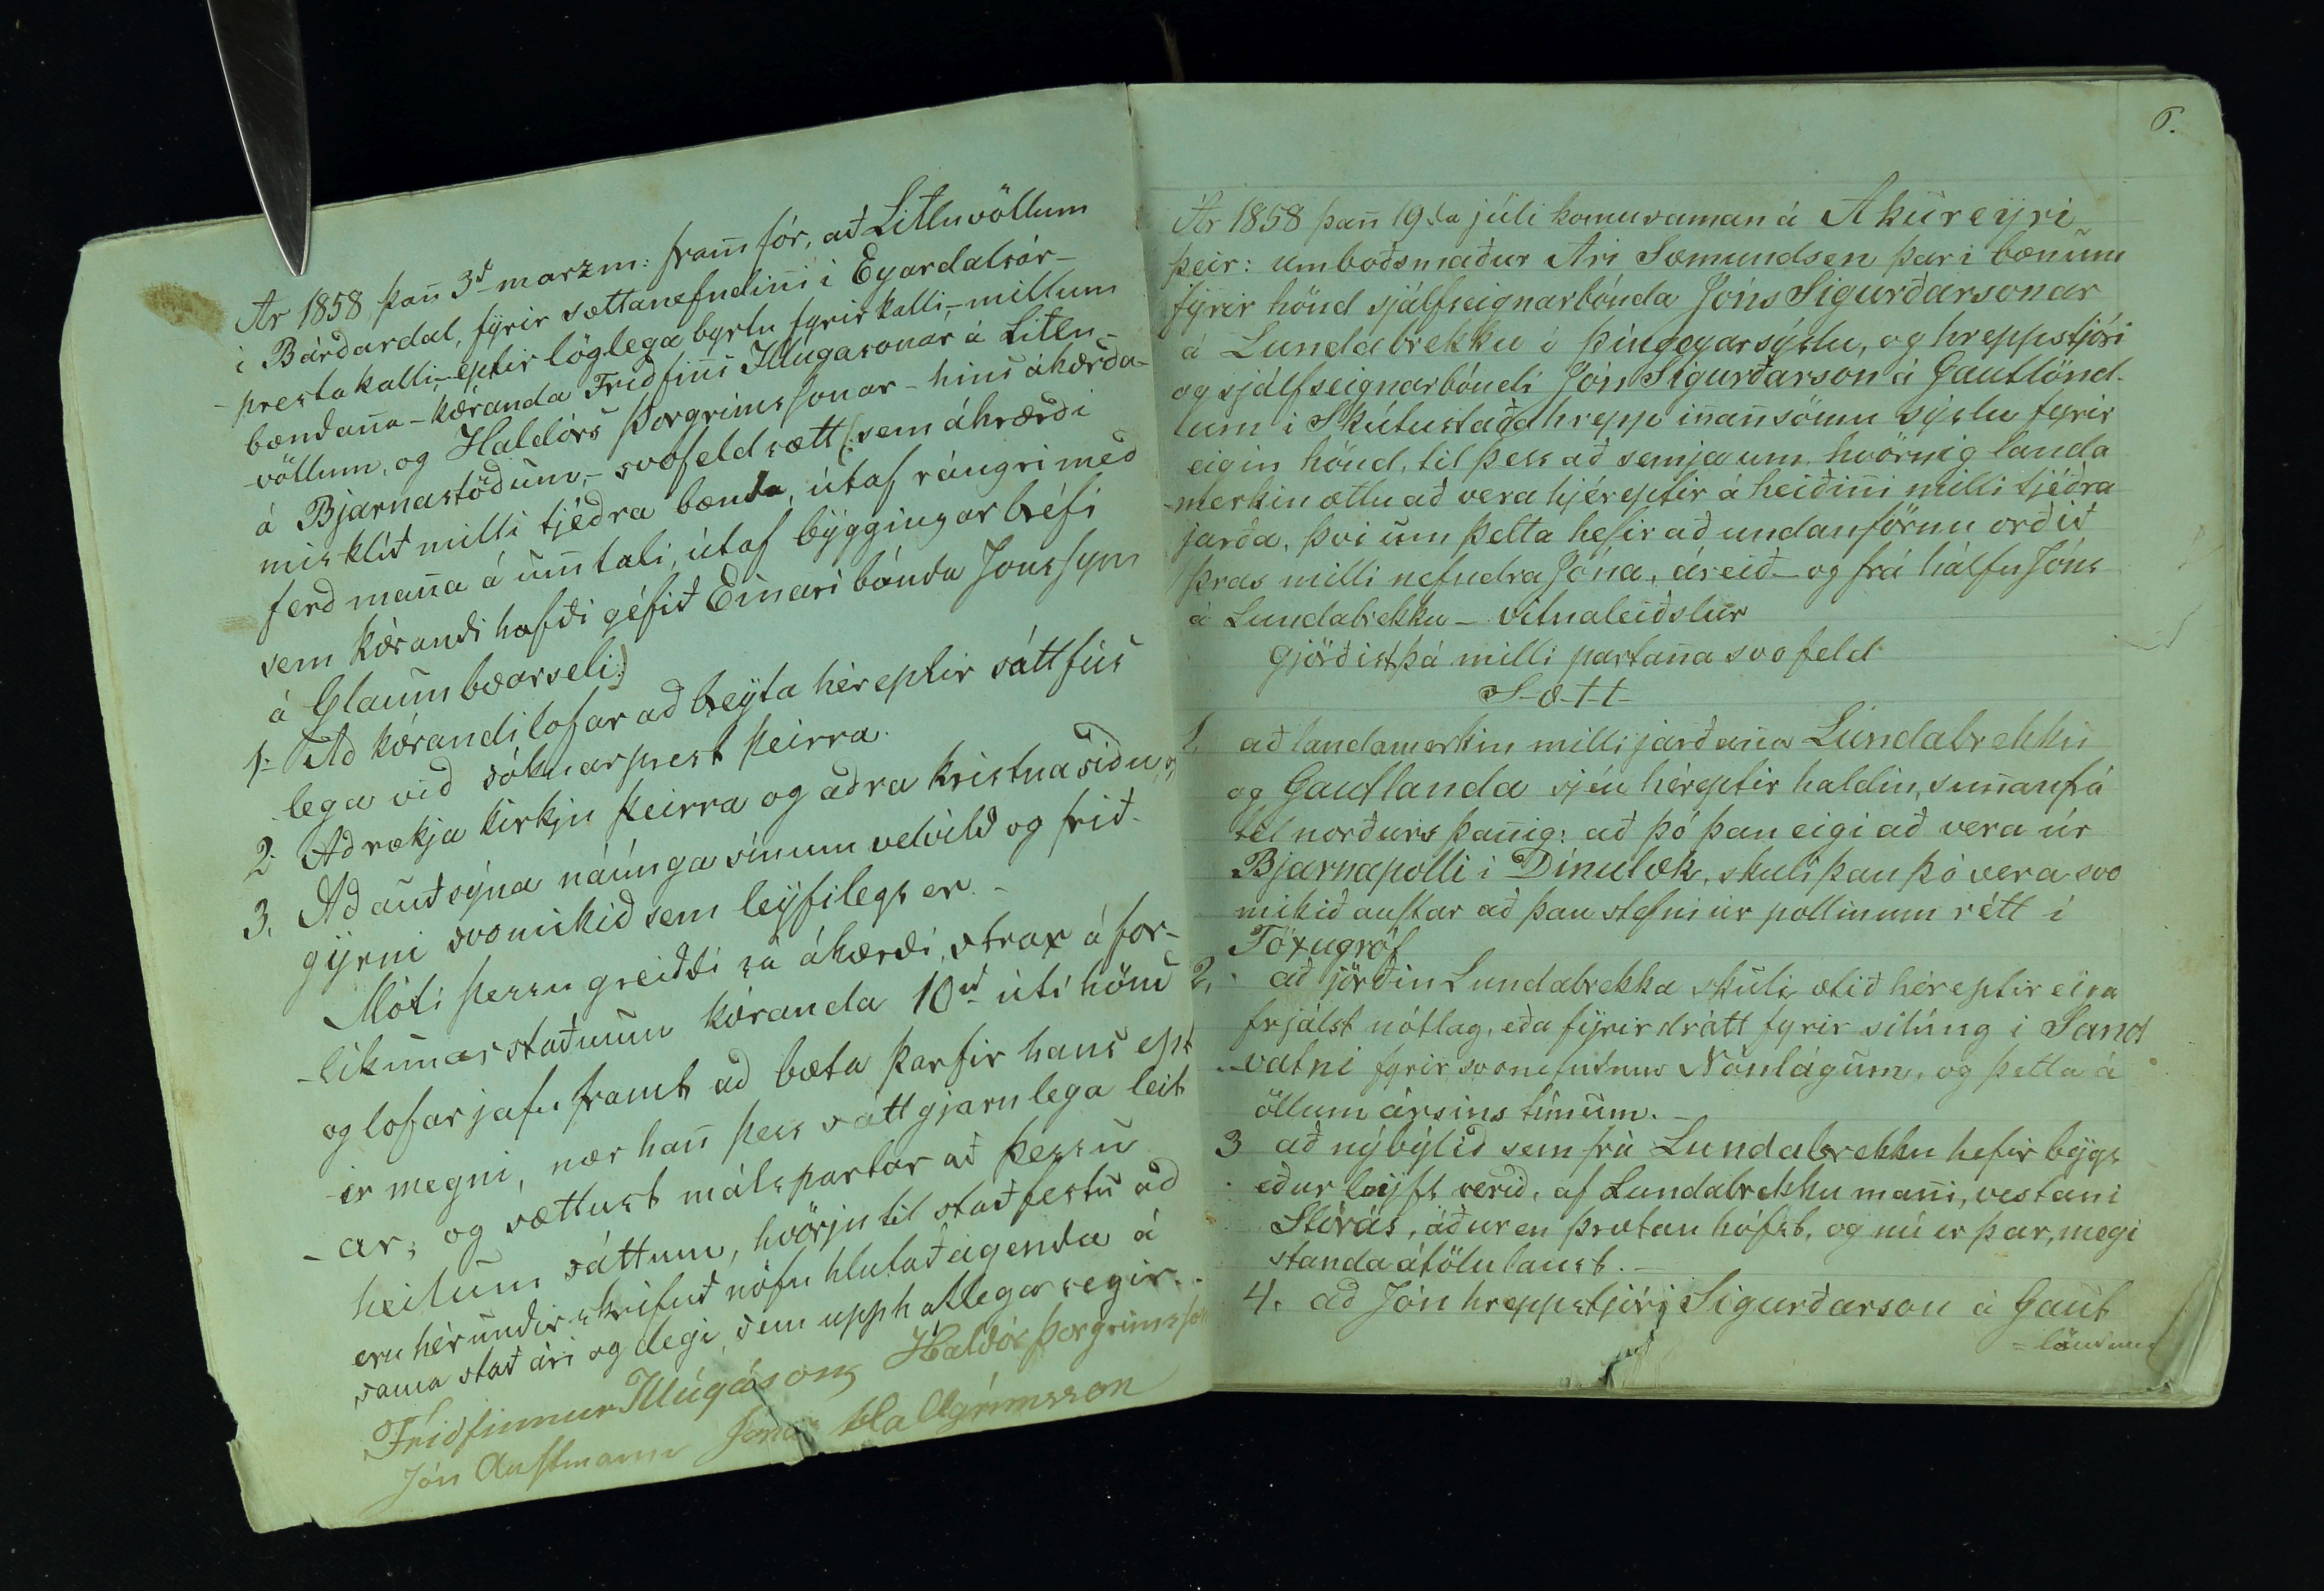 Ár 1858 þan̄ 3ð marzm: fram̄fór, að Litluvöllum
i Bárðardal, fýrir sættanefndin̄i i Eyardalsár-
-prestakalli - eptir löglega byrtu fyrirkalli, - millum
bændan̄a - kæranda Friðfin̄s Illugasonar á Litlu-
-völlum, og Haldórs Þorgrimssonar - hins ákærða-
á Bjarnastöðum, - svofeld sætt (: sem áhrærði
misklíð milli tjéðra bænda, útaf rángri með
ferð man̄a á um̄tali, útaf býggingarbréfi
sem kærandi hafði géfið Einari bónda Jonssyni
á Glaumbæarseli:)
1= Að kærandi lofar að breýta hér eptir sáttfús
lega við sóknarprest þeirra.
2. Að rækja kirkju þeirra og aðra kristna siðu, og
3. Að auðsýna náúnga sínum velvild og frið-
gýrni svo mikið sem leýfilegt er. -
Móti þessu greiddi sá ákærði, strax á for-
-líkunarstaðnum kæranda 10rd útí hönd
og lofar jafnframt að bæta þarfir hans ept
ir megni, nær han̄ þess sáttgjarnlega leit
-ar; og sættust málspartar að þessu
heilum sáttum, hvörju til staðfestu að
eru hér undirskrifuð nöfn hlutaðeigenda á
sama stað ári og degi, sem upphaflega segir. -
Friðfinnur Illúgáson Haldór Þorgrimsson
Jón Austmann Jónas Hallgrímsson
6.
Ár 1858 þan̄ 19.da júli komu saman á Akureýri
þeir: umboðsmaður Ari Sæmundsen þar i bænum
fýrir hönd sjálfseignarbónda Jóns Sigurðarsonar
á Lundabrekku i Þingeyarsýslu, og hreppstjóri
og sjálfseignarbóndi Jón Sigurðarson á Gautlönd-
um i Skútustaðahrepp in̄an sömu sýslu fyrir
eigin hönd, til þess að semja um, hvörnig landa
-merkin ættu að vera hjéreptir á heiðin̄i milli tjéðra
jarða, þvi um þetta hefir að undanförnu orðið
þras milli nefndra Jóna, áreið - og frá hálfu Jóns
á Lundabrekku - vitnaleiðslur
gjörðist þá milli partan̄a svofeld
S-æ-t-t-
1. að landamerkin milli jarðan̄a Lundabrekku
og Gautlanda sjéu héreptir haldin, sun̄anfrá
til norðurs þan̄ig: að þó þau eigi að vera úr
Bjarnapolli i Dínulæk, skuli þau þó vera svo
mikið austar að þau stefni úr pollinum rétt í
Töxugröf
2. að jörðin Lundabrekka skuli ætið héreptir eiga
frjálst nótlag, eða fýrirdrátt fyrir silúng i Sand
-vatni fyrir svonefndum Nónlágum, og þetta á
öllum ársins tímum. -
3 að nýbýlið sem frá Lundabrekku hefir býgt
eður leýft verið, af Lundabrekku man̄i, vestani
Stórás, áður en þrætan hófst, og nú er þar, megi
standa átölulaust. -
4. að Jón hreppstjóri Sigurðarson á Gaut
=löndum